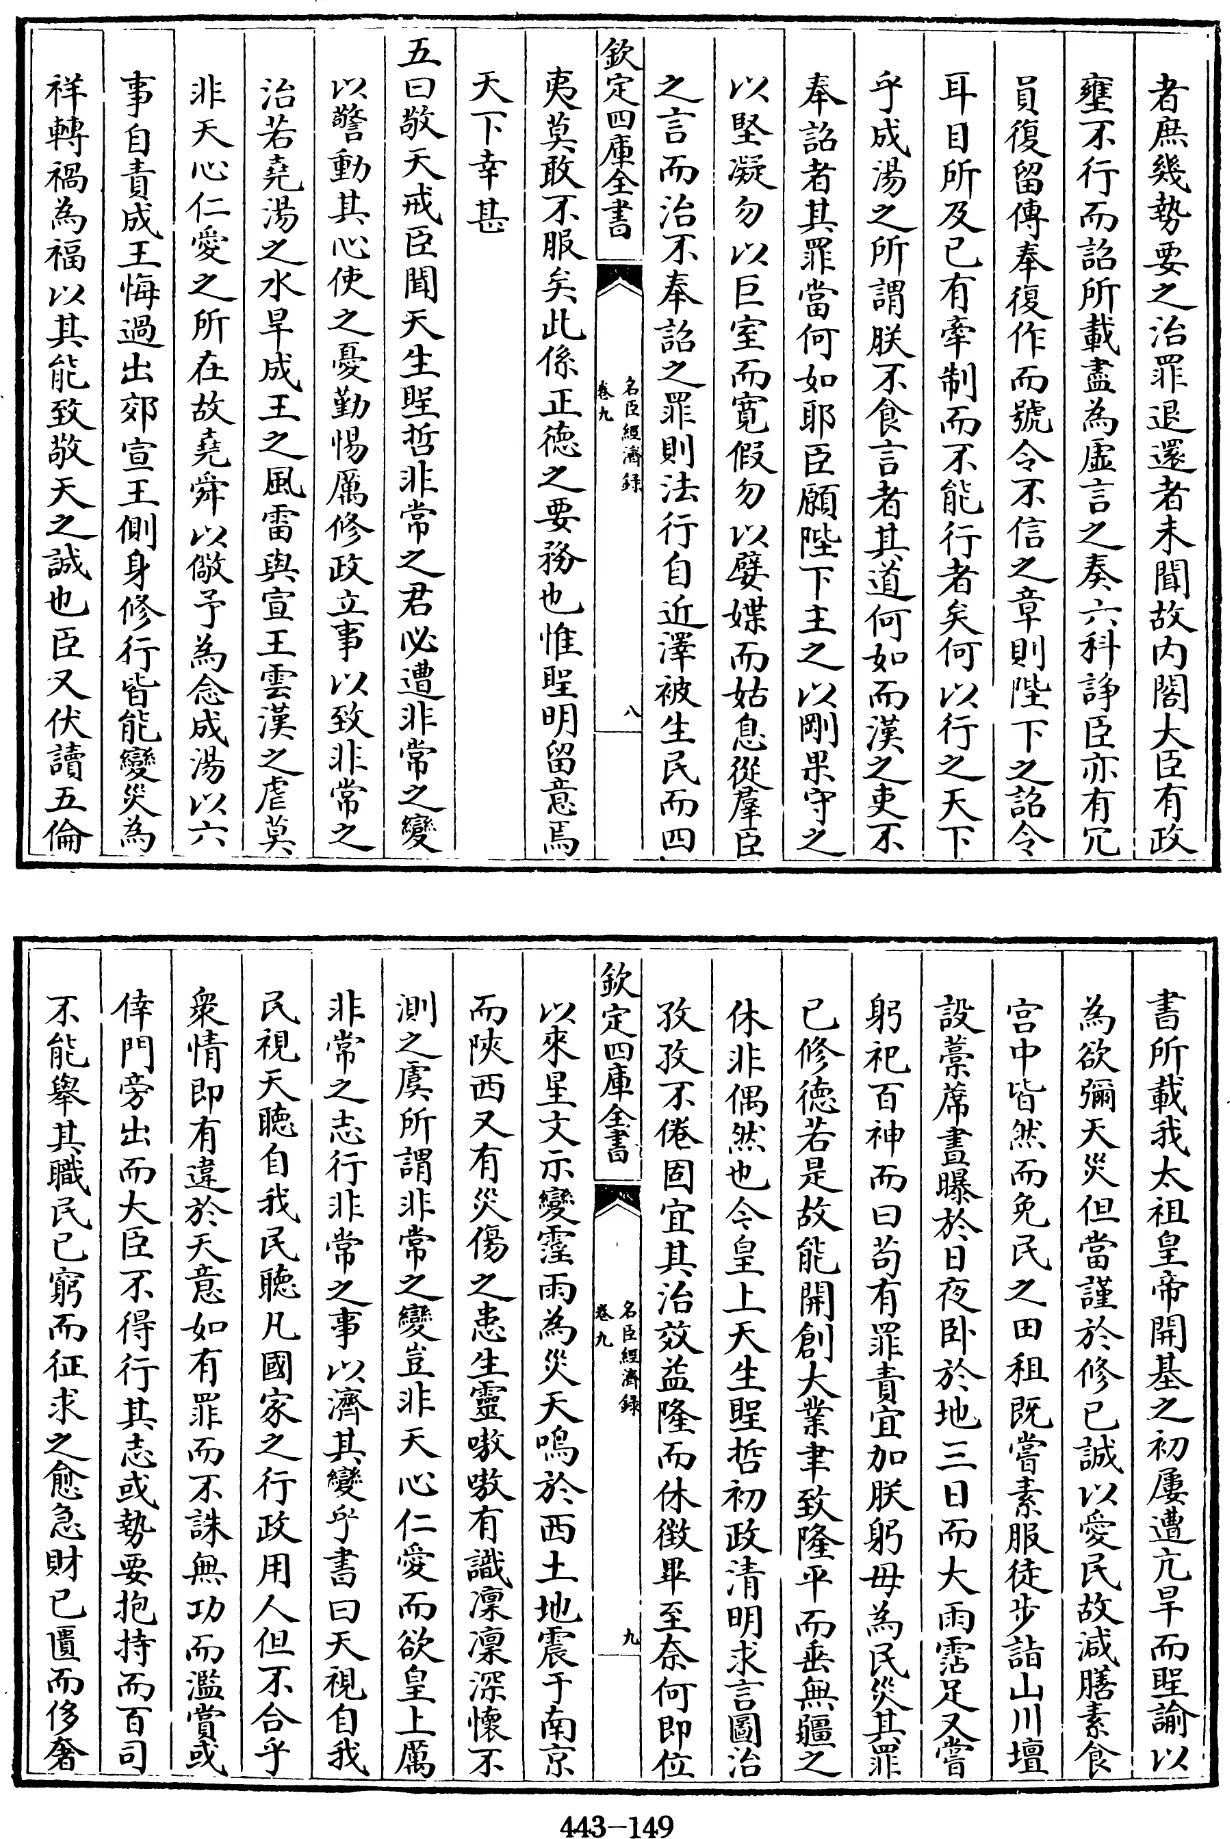 者庶幾勢要之治罪退還者未聞故内閣大臣有政
壅不行而詔所載盡為虛言之奏六科諍臣亦有冗
員復留傳奉復作而號令不信之章則陛下之詔令
耳目所及已有牽制而不能行者矣何以行之天下
乎成湯之所謂朕不食言者其道何如而漢之吏不
奉詔者其罪當何如耶臣願陛下主之以剛果守之
以堅凝勿以巨室而寛假勿以嬖媟而姑息從羣臣
之言而治不奉詔之罪則法行自近澤被生民而四
欽定四庫全書
名臣經濟録
卷九
八
夷莫敢不服矣此係正德之要務也惟聖明留意焉
天下幸甚
五曰敬天戒臣聞天生聖哲非常之君必遭非常之變
以警動其心使之憂勤惕厲修政立事以致非常之
治若堯湯之水旱成王之風雷與宣王雲漢之虐莫
非天心仁愛之所在故堯舜以儆予為念成湯以六
事自責成王悔過出郊宣王側身修行皆能變災為
祥轉禍為福以其能致敬天之誠也臣又伏讀五倫
書所載我太祖皇帝開基之初屢遭亢旱而聖諭以
為欲彌天災但當謹於修己誠以愛民故減膳素食
宫中皆然而免民之田租既嘗素服徒步詣山川壇
設藁蓆晝曝於日夜卧於地三日而大雨霑足又嘗
躬祀百神而曰苟有罪責宜加朕躬毋為民災其罪
己修德若是故能開創大業聿致隆平而垂無疆之
休非偶然也今皇上天生聖哲初政清明求言圖治
孜孜不倦固宜其治效益隆而休徵畢至奈何即位
欽定四庫全書
名臣經濟録
卷九
九
以來星文示變霪雨為災天鳴於西土地震于南京
而陜西又有災傷之患生靈嗷嗷有識凜凜深懷不
測之虞所謂非常之變豈非天心仁愛而欲皇上厲
非常之志行非常之事以濟其變乎書曰天視自我
民視天聽自我民聽凡國家之行政用人但不合乎
衆情即有違於天意如有罪而不誅無功而濫賞或
倖門旁出而大臣不得行其志或勢要抱持而百司
不能舉其職民已窮而征求之愈急財已匱而侈奢
443-149